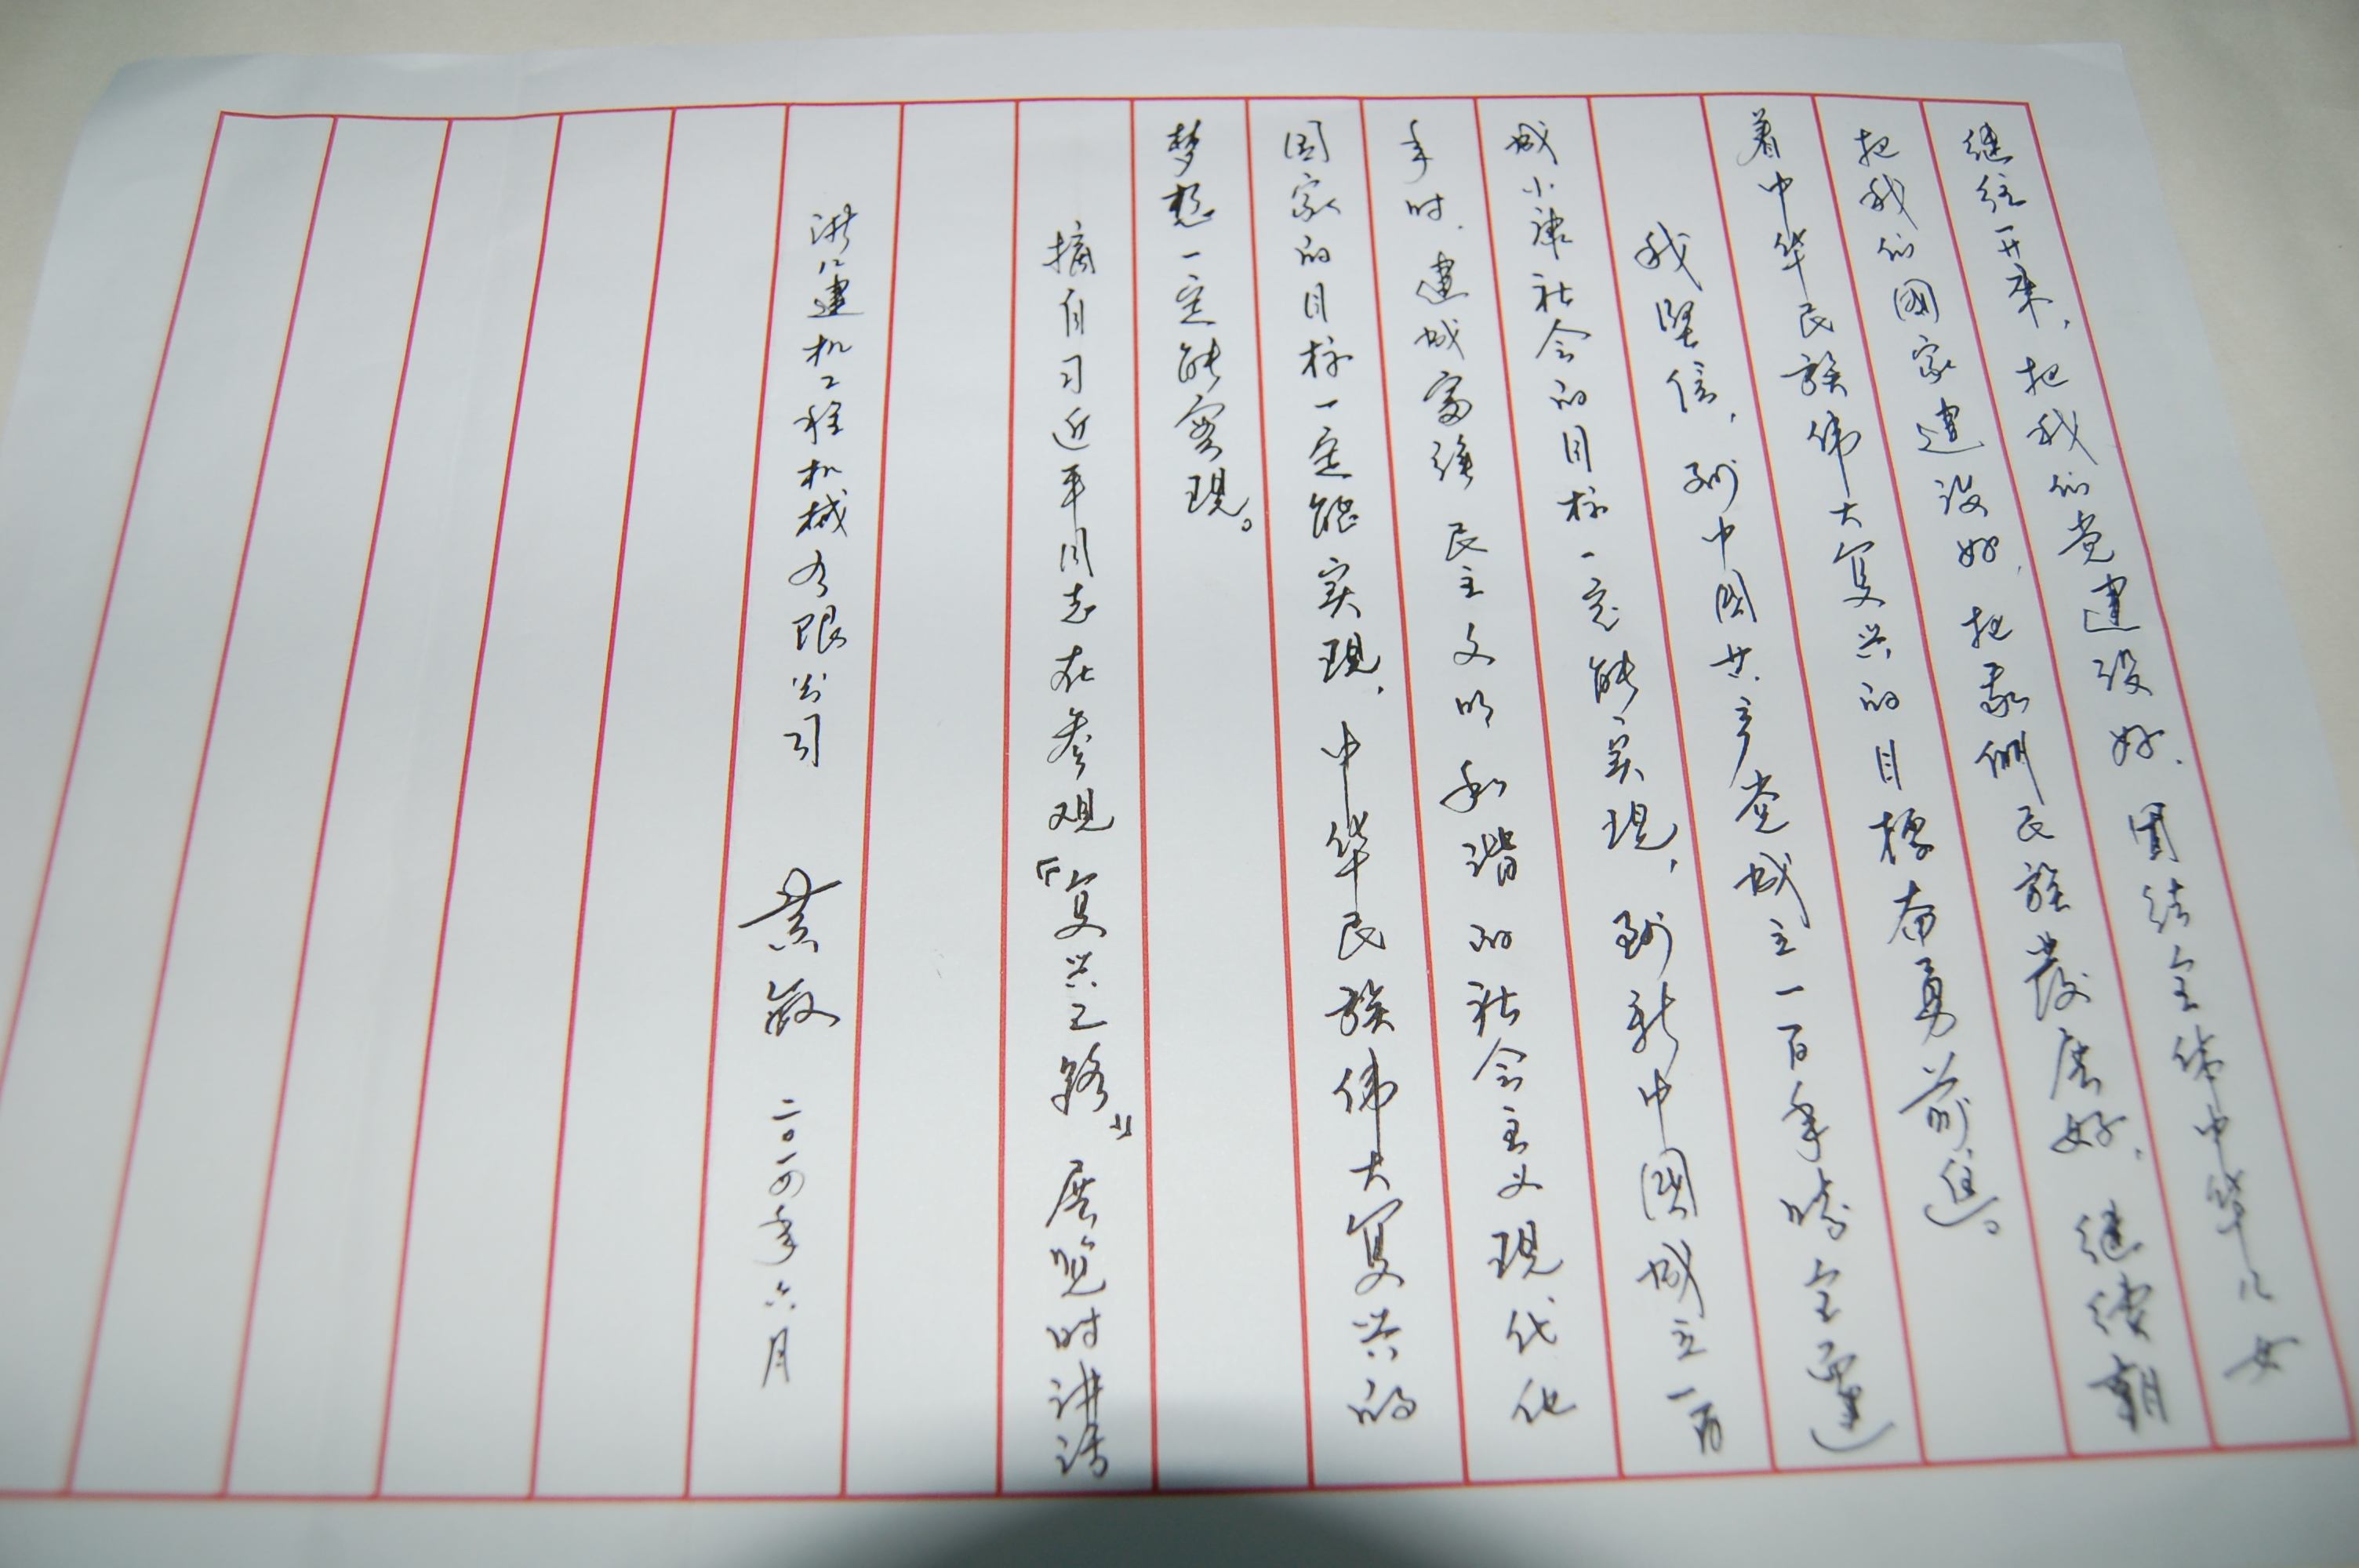 继往开来，把我们党建设好，团结全体中华儿女
把我们國家建设好，把我們民族發展好，继续朝
着中华民族伟大复兴的目標奋勇前進。
我坚信，到中国共产党成立一百年時全面建
成小康社会的目标一定能实现，到新中國成立一百
年时，建成富强民主文明和谐的社会主义现代化
国家的目标一定能实现，中华民族伟大复兴的
梦想一定能實现。
摘自习近平同志在参观「复兴之路」展览时讲话
浙江建机工程机械有限公司 黄敏 二〇一四年六月